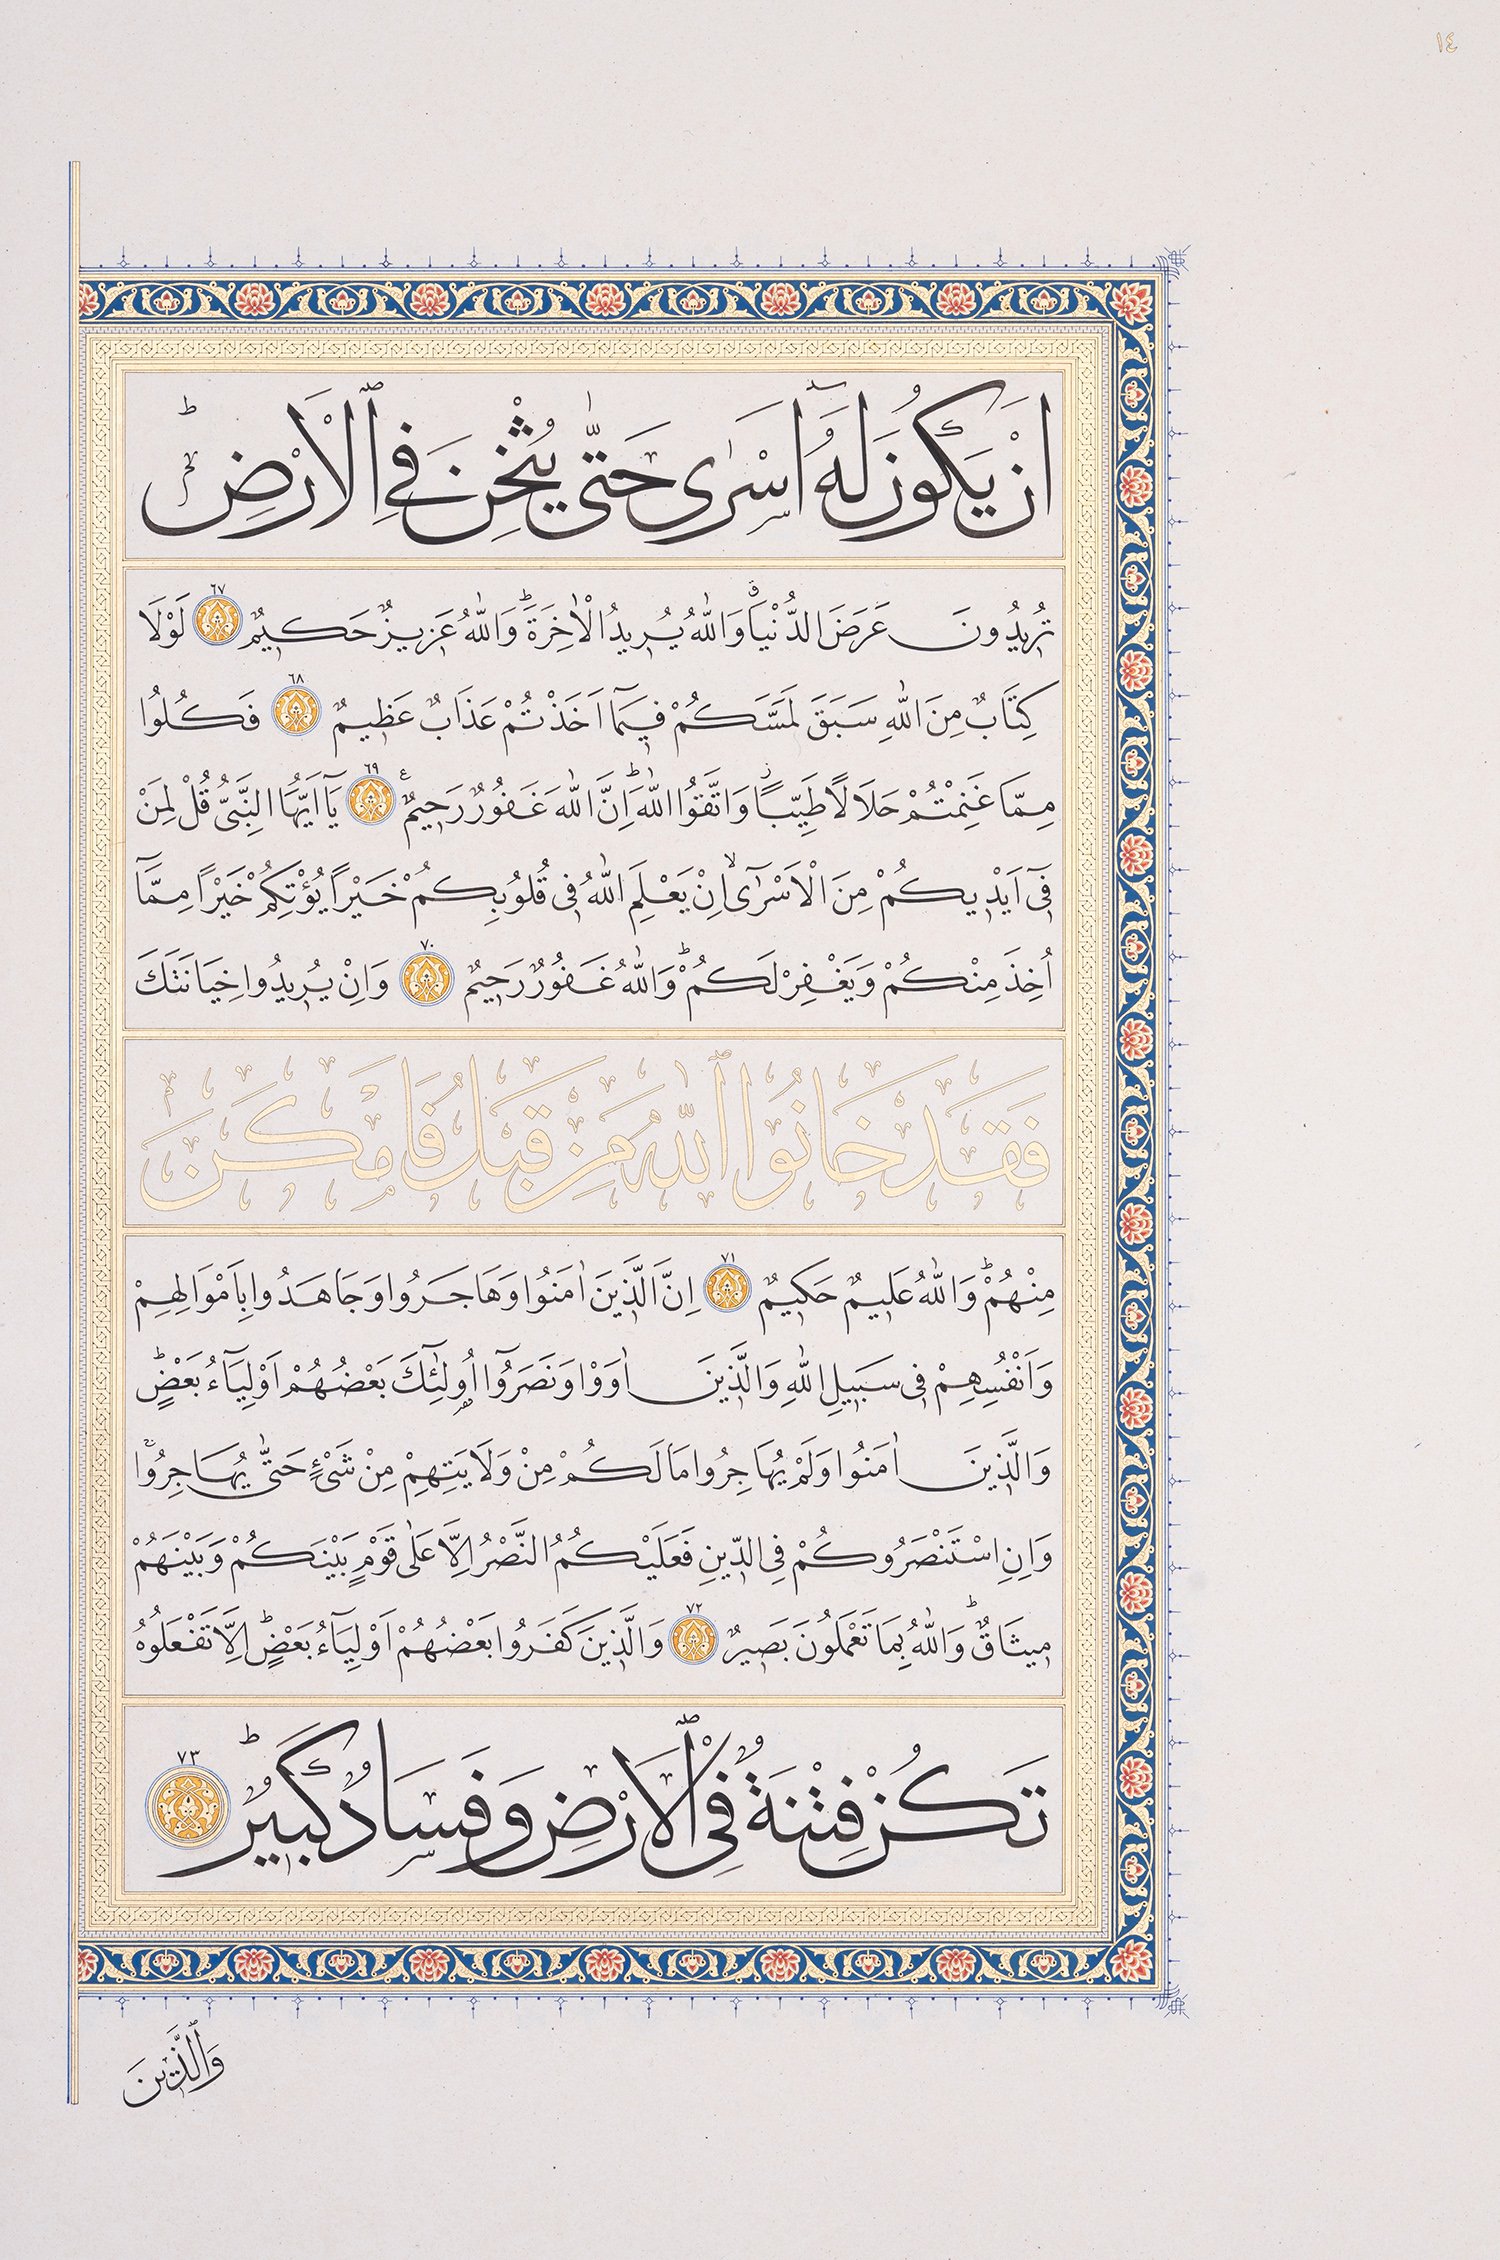 ١٤
اَنْ يَكُونَ لَهُٓ اَسْرٰى حَتّٰى يُثْخِنَ فِي ٱلْاَرْضِۜ
تُرِيدُونَ عَرَضَ الدُّنْيَاۗ وَاللّٰهُ يُرِيدُ الْاٰخِرَةَۜ وَاللّٰهُ عَزِيزٌ حَكِيمٌ ٦٧ لَوْلَا
كِتَابٌ مِنَ اللّٰهِ سَبَقَ لَمَسَّكُمْ فِيمَٓا اَخَذْتُمْ عَذَابٌ عَظِيمٌ ٦٨ فَكُلُوا
مِمَّا غَنِمْتُمْ حَلَالًا طَيِّبًاۘ وَاتَّقُوا اللّٰهَۜ اِنَّ اللّٰهَ غَفُورٌ رَحِيمٌ ٦٩ يَٓا اَيُّهَا النَّبِيُّ قُلْ لِمَنْ
فِٓي اَيْدِيكُمْ مِنَ الْاَسْرٰٓىۙ اِنْ يَعْلَمِ اللّٰهُ فِي قُلُوبِكُمْ خَيْرًا يُؤْتِكُمْ خَيْرًا مِمَّٓا
اُخِذَ مِنْكُمْ وَيَغْفِرْ لَكُمْۜ وَاللّٰهُ غَفُورٌ رَحِيمٌ ٧٠ وَاِنْ يُرِيدُوا خِيَانَتَكَ
فَقَدْ خَانُوا ٱللّٰهَ مِنْ قَبْلُ فَاَمْكَنَ
مِنْهُمْۜ وَاللّٰهُ عَلِيمٌ حَكِيمٌ ٧١ اِنَّ الَّذِينَ اٰمَنُوا وَهَاجَرُوا وَجَاهَدُوا بِاَمْوَالِهِمْ
وَاَنْفُسِهِمْ فِي سَبِيلِ اللّٰهِ وَالَّذِينَ اٰوَوْا وَنَصَرُٓوا اُو۬لٰٓئِكَ بَعْضُهُمْ اَوْلِيَٓاءُ بَعْضٍۜ
وَالَّذِينَ اٰمَنُوا وَلَمْ يُهَاجِرُوا مَا لَكُمْ مِنْ وَلَايَتِهِمْ مِنْ شَيْءٍ حَتّٰى يُهَاجِرُواۚ
وَاِنِ اسْتَنْصَرُوكُمْ فِي الدِّينِ فَعَلَيْكُمُ النَّصْرُ اِلَّا عَلٰى قَوْمٍ بَيْنَكُمْ وَبَيْنَهُمْ
مِيثَاقٌۜ وَاللّٰهُ بِمَا تَعْمَلُونَ بَصِيرٌ ٧٢ وَالَّذِينَ كَفَرُوا بَعْضُهُمْ اَوْلِيَٓاءُ بَعْضٍۜ اِلَّا تَفْعَلُوهُ
تَكُنْ فِتْنَةٌ فِي ٱلْاَرْضِ وَفَسَادٌ كَبِيرٌۜ ٧٣
وَٱلَّذِينَ